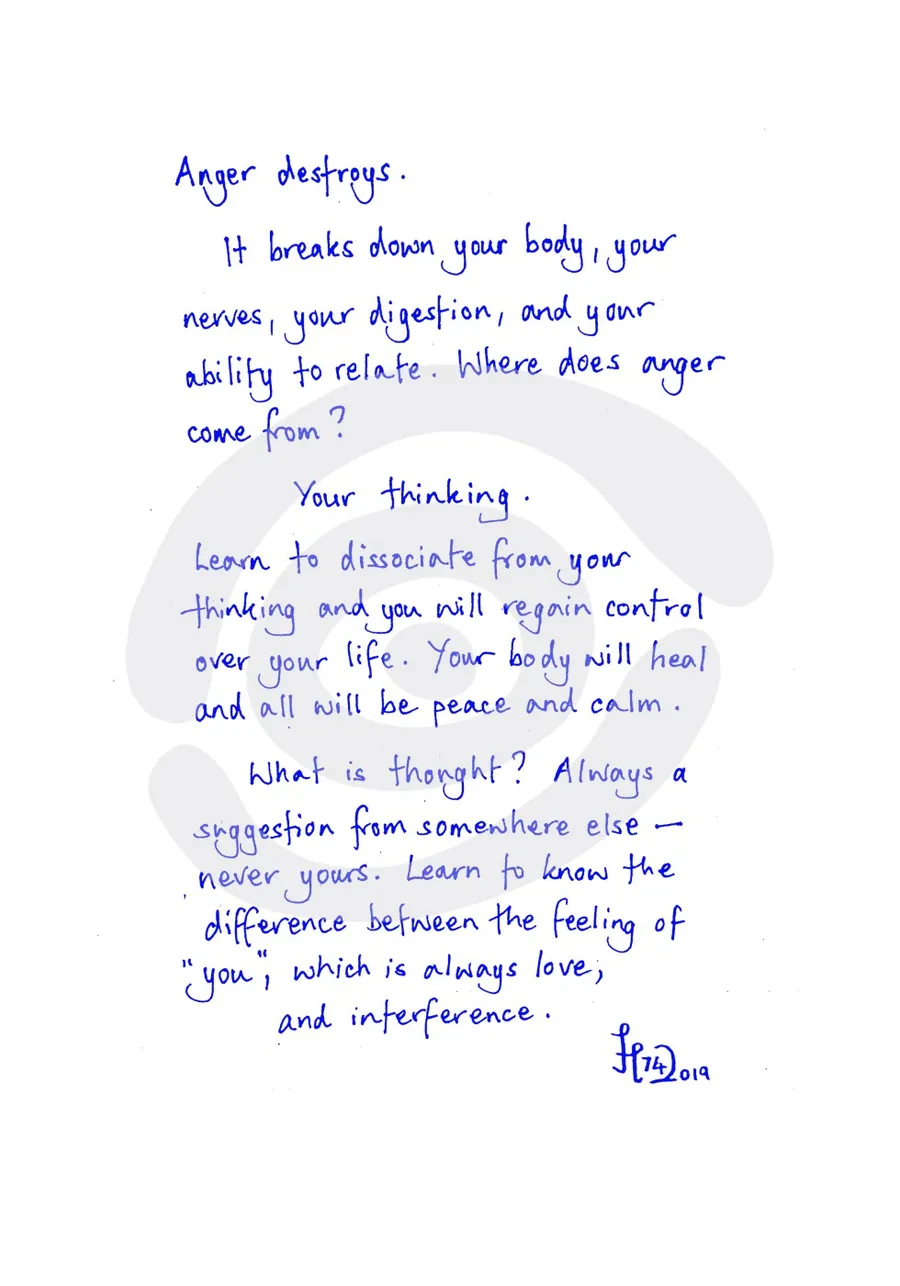 Anger destroys.
It breaks down your body, your
nerves, your digestion, and your
ability to relate. Where does anger
come from?
Your thinking.
Learn to dissociate from your
thinking and you will regain control
over your life. Your body will heal
and all will be peace and calm.
What is thought? Always a
suggestion from somewhere else —
never yours. Learn to know the
difference between the feeling of
"you", which is always love,
and interference.
(74)2019